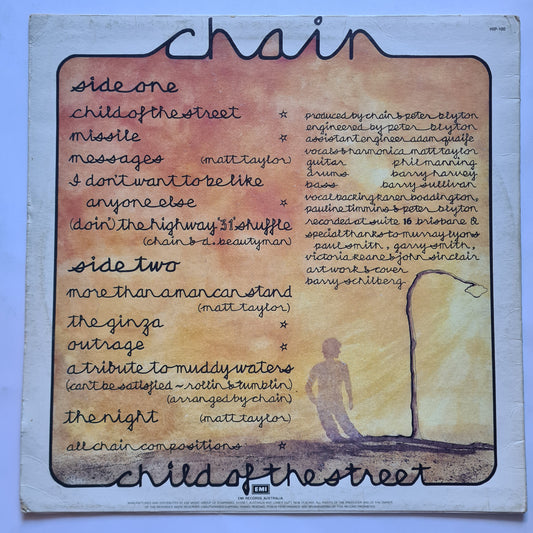 chain
HIP-100
side one
child of the street ☆
missile ☆
messages (matt taylor)
I don't want to be like
anyone else ☆
(doin') the highway '31' shuffle
(chain & d. beautyman)
side two
more than a man can stand
(matt taylor)
the ginza ☆
outrage ☆
a tribute to muddy waters
(can't be satisfied ~ rollin & tumblin)
(arranged by chain)
the night (matt taylor)
all chain compositions ☆
produced by chain & peter blyton
engineered by peter blyton
assistant engineer adam quaife
vocals & harmonica matt taylor
guitar phil manning
drums barry harvey
bass barry sullivan
vocal backing karen boddington,
pauline timmins & peter blyton
recorded at suite 16 brisbane &
special thanks to murray lyons
paul smith, garry smith,
victoria keane & john sinclair
art work & cover
barry schilberg.
child of the street
EMI
EMI RECORDS AUSTRALIA